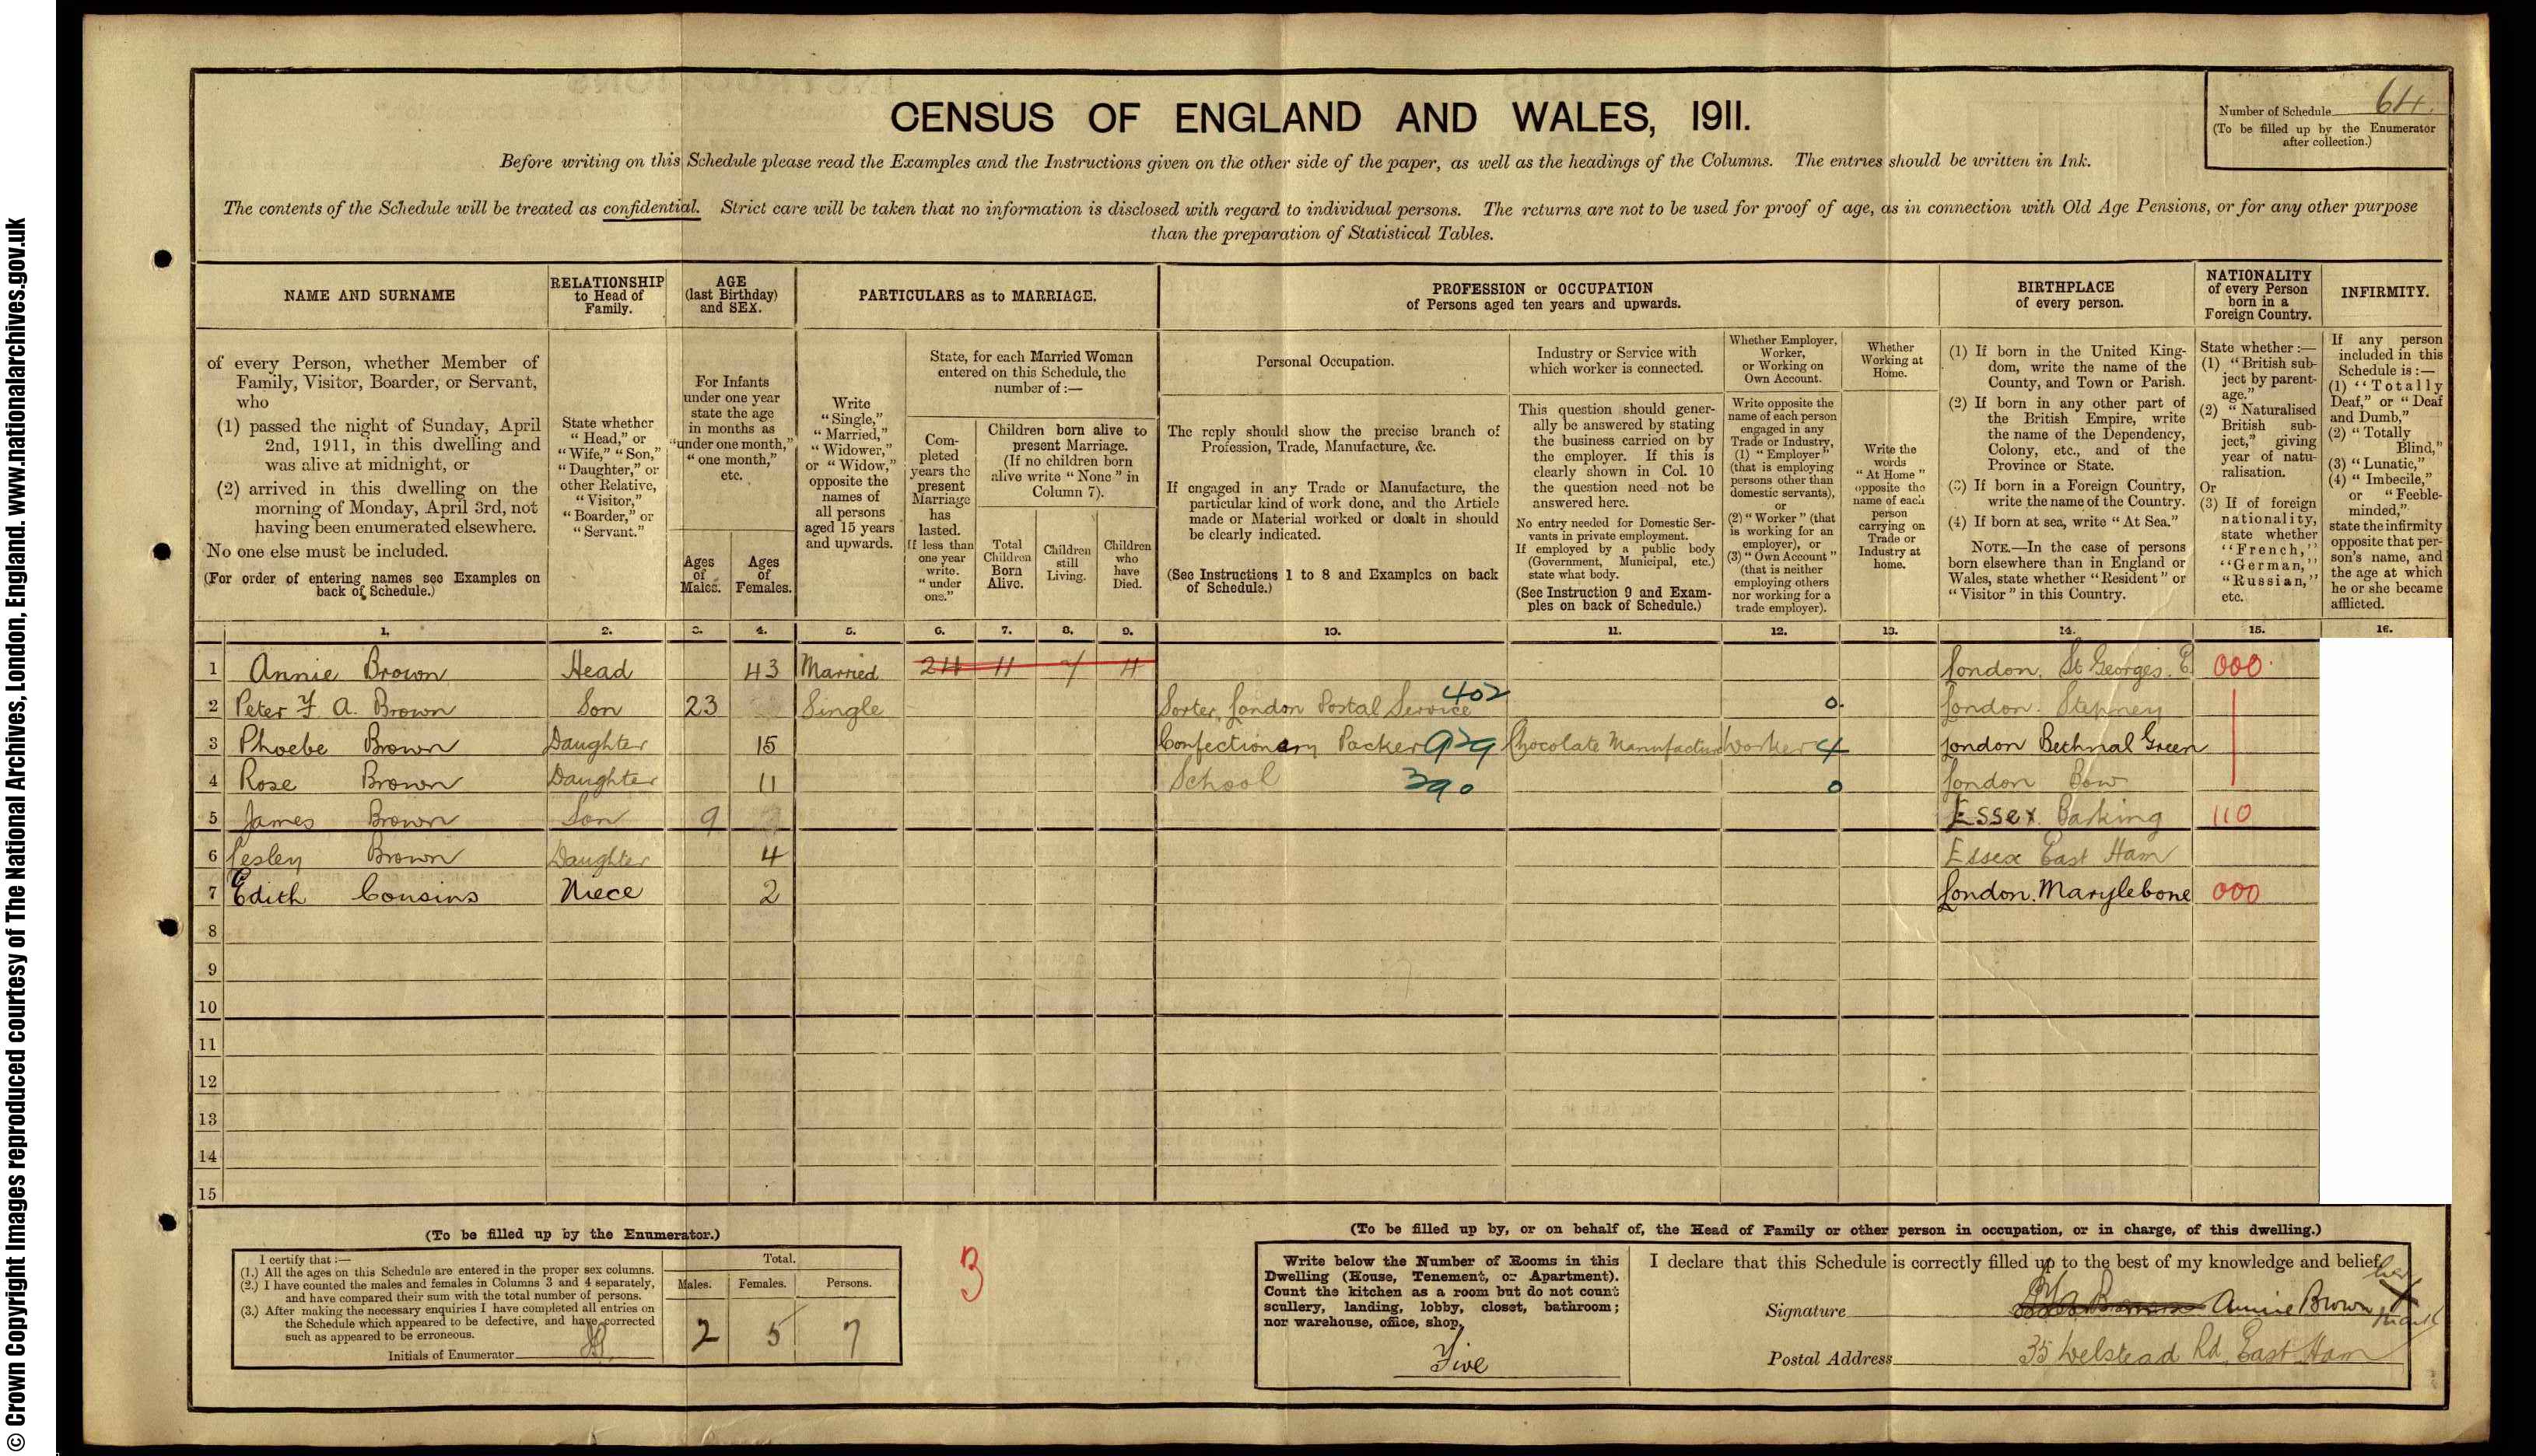 © Crown Copyright Images reproduced courtesy of The National Archives, London, England. www.nationalarchives.gov.uk
CENSUS OF ENGLAND AND WALES, 1911.
Number of Schedule 64.
(To be filled up by the Enumerator
after collection.)
Before writing on this Schedule please read the Examples and the Instructions given on the other side of the paper, as well as the headings of the Columns. The entries should be written in Ink.
The contents of the Schedule will be treated as confidential. Strict care will be taken that no information is disclosed with regard to individual persons. The returns are not to be used for proof of age, as in connection with Old Age Pensions, or for any other purpose
than the preparation of Statistical Tables.
NAME AND SURNAME
of every Person, whether Member of
Family, Visitor, Boarder, or Servant,
who
(1) passed the night of Sunday, April
2nd, 1911, in this dwelling and
was alive at midnight, or
(2) arrived in this dwelling on the
morning of Monday, April 3rd, not
having been enumerated elsewhere.
No one else must be included.
(For order of entering names see Examples on
back of Schedule.)
RELATIONSHIP
to Head of
Family.
State whether
"Head," or
"Wife," "Son,"
"Daughter," or
other Relative,
"Visitor,"
"Boarder," or
"Servant."
AGE
(last Birthday)
and SEX.
For Infants
under one year
state the age
in months as
"under one month,"
"one month,"
etc.
Ages
of
Males.
Ages
of
Females.
PARTICULARS as to MARRIAGE.
Write
"Single,"
"Married,"
"Widower,"
or "Widow,"
opposite the
names of
all persons
aged 15 years
and upwards.
State, for each Married Woman
entered on this Schedule, the
number of:—
Com-
pleted
years the
present
Marriage
has
lasted.
If less than
one year
write
"under
one."
Children born alive to
present Marriage.
(If no children born
alive write "None" in
Column 7).
Total
Children
Born
Alive.
Children
still
Living.
Children
who
have
Died.
PROFESSION or OCCUPATION
of Persons aged ten years and upwards.
Personal Occupation.
The reply should show the precise branch of
Profession, Trade, Manufacture, &c.
If engaged in any Trade or Manufacture, the
particular kind of work done, and the Article
made or Material worked or dealt in should
be clearly indicated.
(See Instructions 1 to 8 and Examples on back
of Schedule.)
Industry or Service with
which worker is connected.
This question should gener-
ally be answered by stating
the business carried on by
the employer. If this is
clearly shown in Col. 10
the question need not be
answered here.
No entry needed for Domestic Ser-
vants in private employment.
If employed by a public body
(Government, Municipal, etc.)
state what body.
(See Instruction 9 and Exam-
ples on back of Schedule.)
Whether Employer,
Worker,
or Working on
Own Account.
Write opposite the
name of each person
engaged in any
Trade or Industry,
(1) "Employer"
(that is employing
persons other than
domestic servants),
or
(2) "Worker" (that
is working for an
employer), or
(3) "Own Account"
(that is neither
employing others
nor working for a
trade employer).
Whether
Working at
Home.
Write the
words
"At Home"
opposite the
name of each
person
carrying on
Trade or
Industry at
home.
BIRTHPLACE
of every person.
(1) If born in the United King-
dom, write the name of the
County, and Town or Parish.
(2) If born in any other part of
the British Empire, write
the name of the Dependency,
Colony, etc., and of the
Province or State.
(3) If born in a Foreign Country,
write the name of the Country.
(4) If born at sea, write "At Sea."
NOTE.—In the case of persons
born elsewhere than in England or
Wales, state whether "Resident" or
"Visitor" in this Country.
NATIONALITY
of every Person
born in a
Foreign Country.
State whether:—
(1) "British sub-
ject by parent-
age."
(2) "Naturalised
British sub-
ject," giving
year of natu-
ralisation.
Or
(3) If of foreign
nationality,
state whether
"French,"
"German,"
"Russian,"
etc.
INFIRMITY.
If any person
included in this
Schedule is:—
(1) "Totally
Deaf," or "Deaf
and Dumb,"
(2) "Totally
Blind,"
(3) "Lunatic,"
(4) "Imbecile,"
or "Feeble-
minded,"
state the infirmity
opposite that per-
son's name, and
the age at which
he or she became
afflicted.
1. 2. 3. 4. 5. 6. 7. 8. 9. 10. 11. 12. 13. 14. 15. 16.
1 Annie Brown Head 43 Married 24 11 7 4 London. St Georges. E 000
2 Peter F A. Brown Son 23 Single Sorter, London Postal Service 402 0. London. Stepney
3 Phoebe Brown Daughter 15 Confectionary Packer 929 Chocolate Manufacture Worker 4 London Bethnal Green
4 Rose Brown Daughter 11 School 390 0 London Bow
5 James Brown Son 9 Essex. Barking 110
6 Lesley Brown Daughter 4 Essex East Ham
7 Edith Cousins Niece 2 London. Marylebone 000
8
9
10
11
12
13
14
15
(To be filled up by the Enumerator.)
I certify that:—
(1.) All the ages on this Schedule are entered in the proper sex columns.
(2.) I have counted the males and females in Columns 3 and 4 separately,
and have compared their sum with the total number of persons.
(3.) After making the necessary enquiries I have completed all entries on
the Schedule which appeared to be defective, and have corrected
such as appeared to be erroneous.
Initials of Enumerator
Total.
Males. Females. Persons.
2 5 7
3
(To be filled up by, or on behalf of, the Head of Family or other person in occupation, or in charge, of this dwelling.)
Write below the Number of Rooms in this
Dwelling (House, Tenement, or Apartment).
Count the kitchen as a room but do not count
scullery, landing, lobby, closet, bathroom;
nor warehouse, office, shop.
Five
I declare that this Schedule is correctly filled up to the best of my knowledge and belief.
Signature Annie Brown her X mark
Postal Address 35 Welstead Rd, East Ham